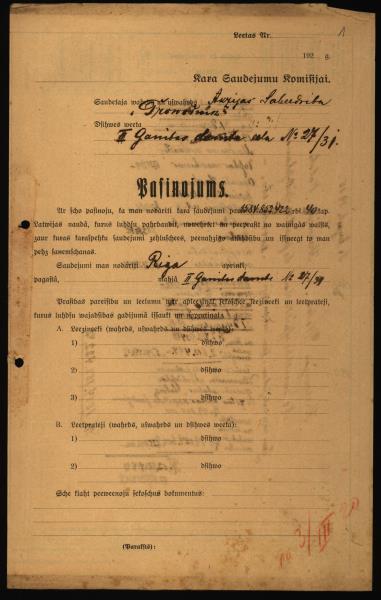 1
Leetas Nr.
192 g.
Kara Saudejumu Komisijai.
Saudetaja wahrds un uswahrds Akzijas Sabeedriba
"Provodnik"
Dsihwes weeta
II Ganibas dambis Nº 27/31.
Pasiņojums.
Ar scho pasiņoju, ka man nodariti kara saudejumi par 1584.553.422 rbļ. 40 kap.
Latwijas naudā, kurus luhdsu pahrbaudit, nowehrtet un peepraſit no wainigās walsts,
zaur kuras karaspehku saudejumi zehluschees, peenahzigo atlihdsibu un issneegt to man
pehz saņemschanas.
Saudejumi man nodariti Rīgā apriņķi,
pagastā, mahjā II Ganibas dambi Nº 27/31
Prasibas pareisibu un leelumu war apleezinat sekoschee leezineeki un leetprateji,
kurus luhdsu wajadsibas gadijumā issaukt un nopratinat.
A. Leezineeki (wahrds, uswahrds un dsihwes weeta):
1) dsihwo
2) dsihwo
3) dsihwo
B. Leetprateji (wahrds, uswahrds un dsihwes weeta):
1) dsihwo
2) dsihwo
Sche klaht peeweenoju sekoschus dokumentus:
(Paraksts):
3/III 20